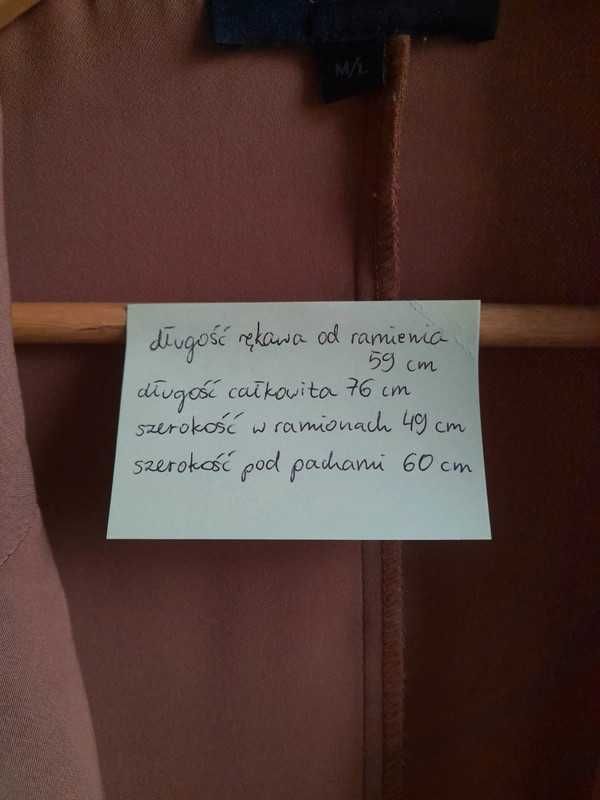 M/L
długość rękawa od ramienia
59 cm
długość całkowita 76 cm
szerokość w ramionach 49 cm
szerokość pod pachami 60 cm